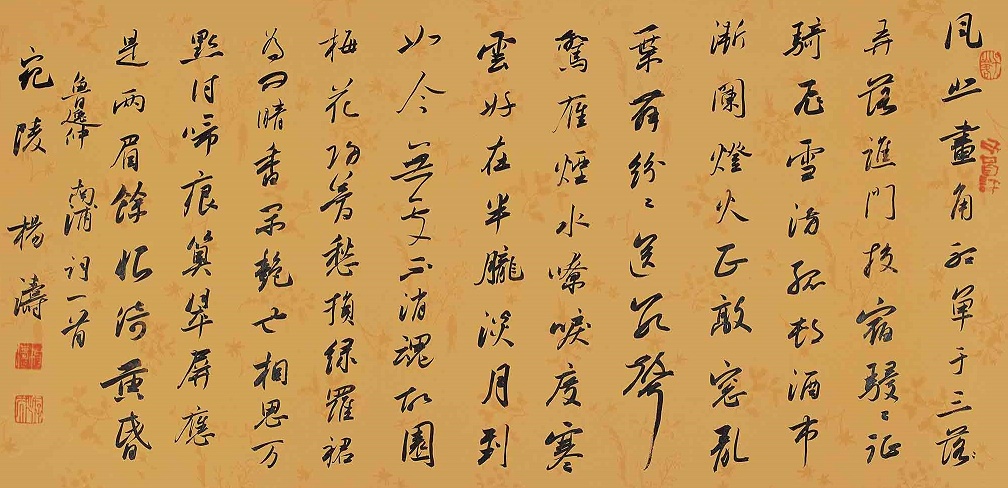 风悲畫角听單于三落
弄落譙門投宿駸〻征
騎飛雪滿孤村酒市
漸闌燈火正敲窗亂
葉舞紛〻送數聲
驚雁煙水嘹唳度寒
雲好在半朧淡月到
如今無處不消魂故園
梅花归夢愁損綠羅裙
為問暗香閒艷也相思万
點付啼痕算翠屏應
是兩眉餘恨倚黃昏
魯逸仲 南浦 词一首
宛陵 楊濤